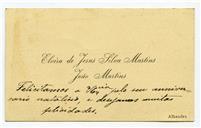 Eloisa de Jesus Silva Martins
João Martins
Felicitamos a V.ª Ex.cia pelo seu aniver
sario natalicio, e desejamos muitas
felicidades.
Alhandra